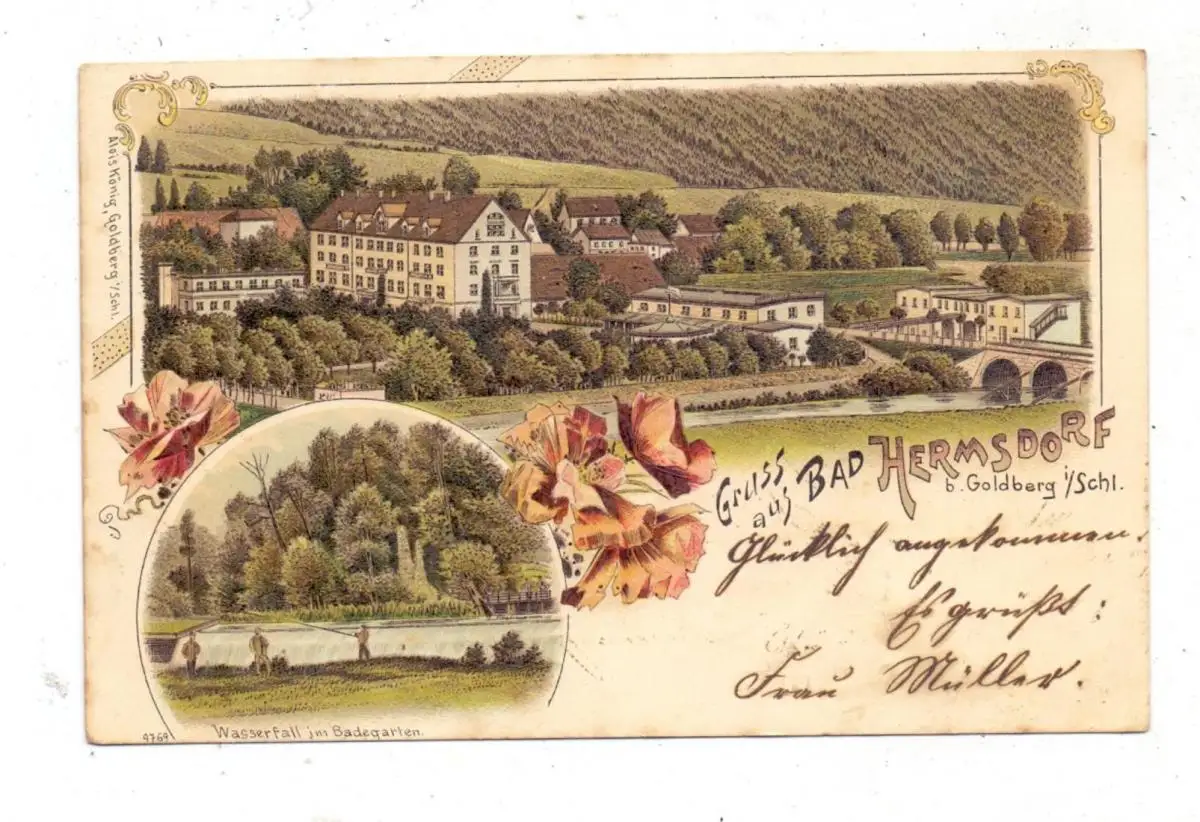 Alois König, Goldberg i/Schl.
Gruss
aus BAD HERMSDORF
b. Goldberg i/Schl.
Glücklich angekommen.
Es grüßt:
Frau Müller.
Wasserfall im Badegarten.